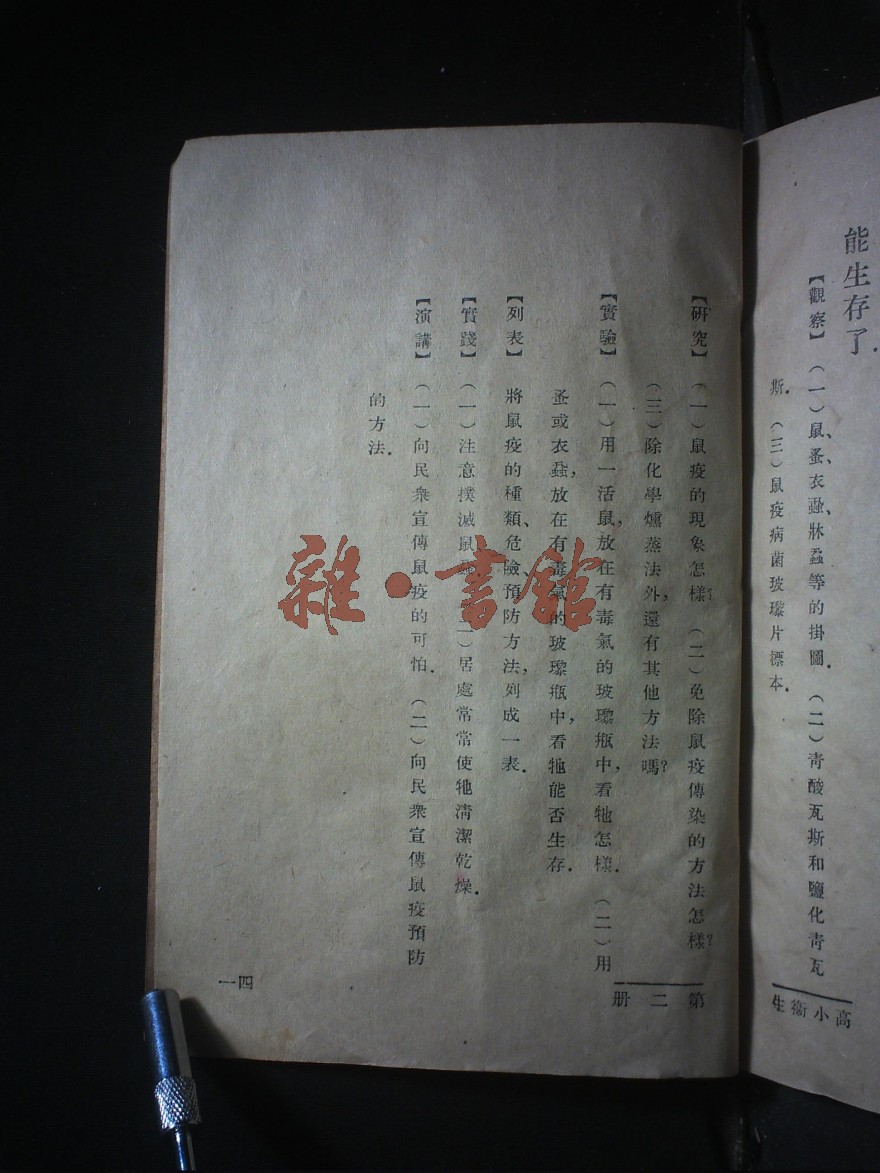 能生存了．
【觀察】（一）鼠、蚤、衣蝨、牀蝨等的掛圖．（二）青酸瓦斯和鹽化青瓦
斯．（三）鼠疫病菌玻瓈片標本．
高小衞生
【研究】（一）鼠疫的現象怎樣？（二）免除鼠疫傳染的方法怎樣？
（三）除化學燻蒸法外，還有其他方法嗎？
【實驗】（一）用一活鼠，放在有毒氣的玻瓈瓶中，看牠怎樣．（二）用
蚤或衣蝨，放在有毒氣的玻瓈瓶中，看牠能否生存．
【列表】將鼠疫的種類、危險、預防方法，列成一表．
【實踐】（一）注意撲滅鼠二）居處常常使牠清潔乾燥．
【演講】（一）向民衆宣傳鼠疫的可怕．（二）向民衆宣傳鼠疫預防
的方法．
第二册
四一
雜·書館